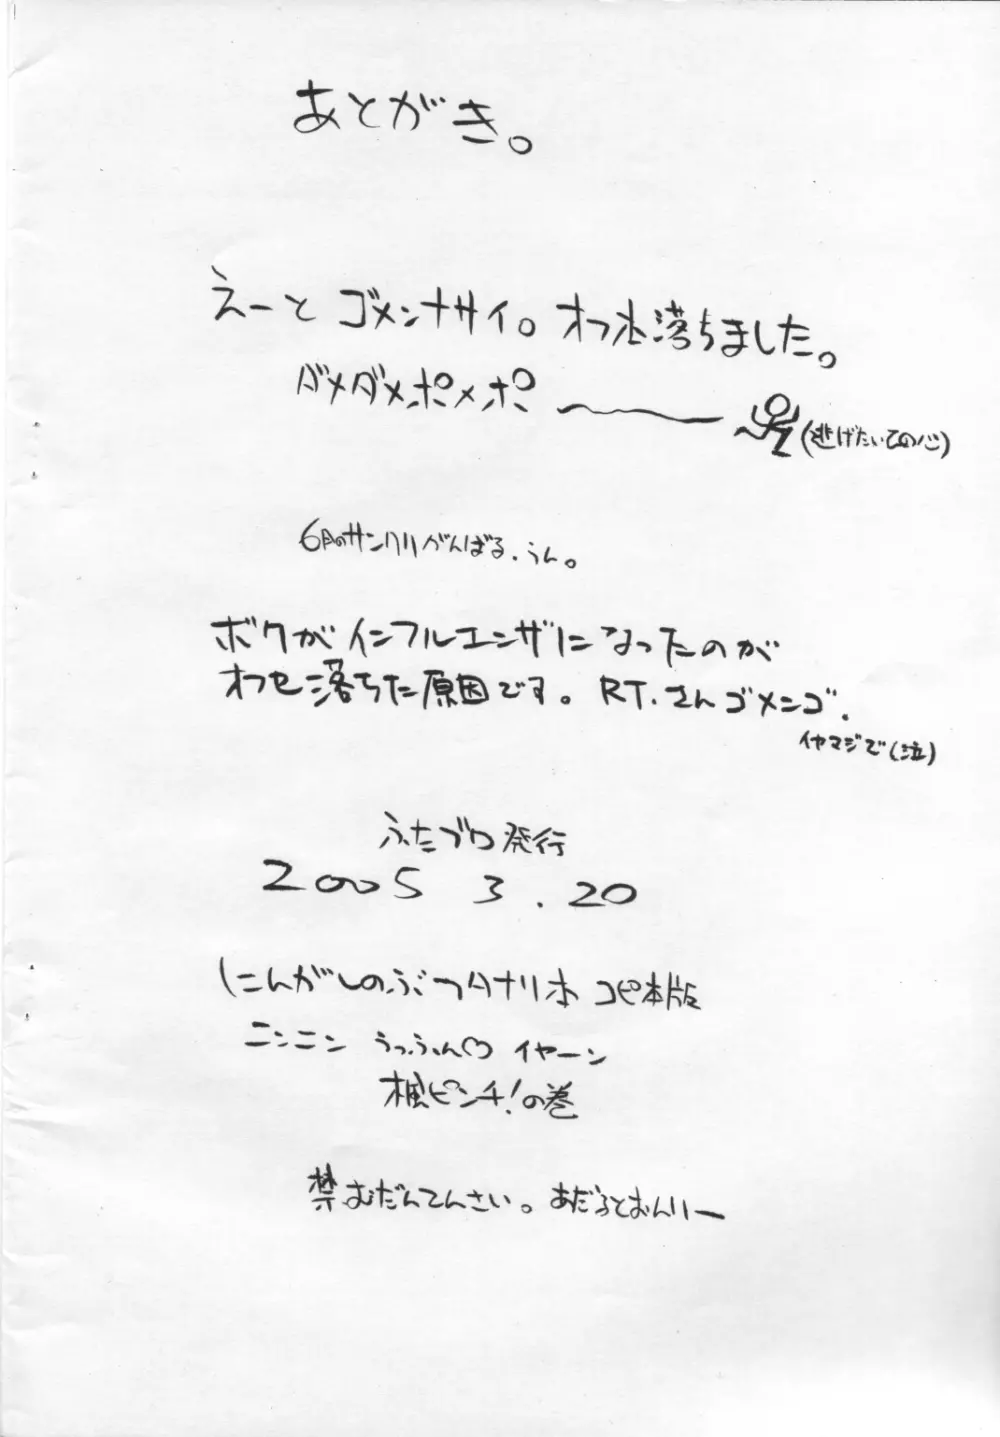 あとがき。
えーと ゴメンナサイ。オフ本落ちました。
ダメダメポメポ
(逃げたいての心)
6月のサンクリがんばる、うん。
ボクがインフルエンザになったのが
オフセ落ちた原因です。RT.さんゴメンゴ.
イヤマジで(泣)
ふたプロ発行
2005 3.20
にんがしのぶフタナリ本 コピ本版
ニンニン うっふん♡ イヤーン
楓ピンチ!の巻
禁むだんてんさい。あだるとおんりー